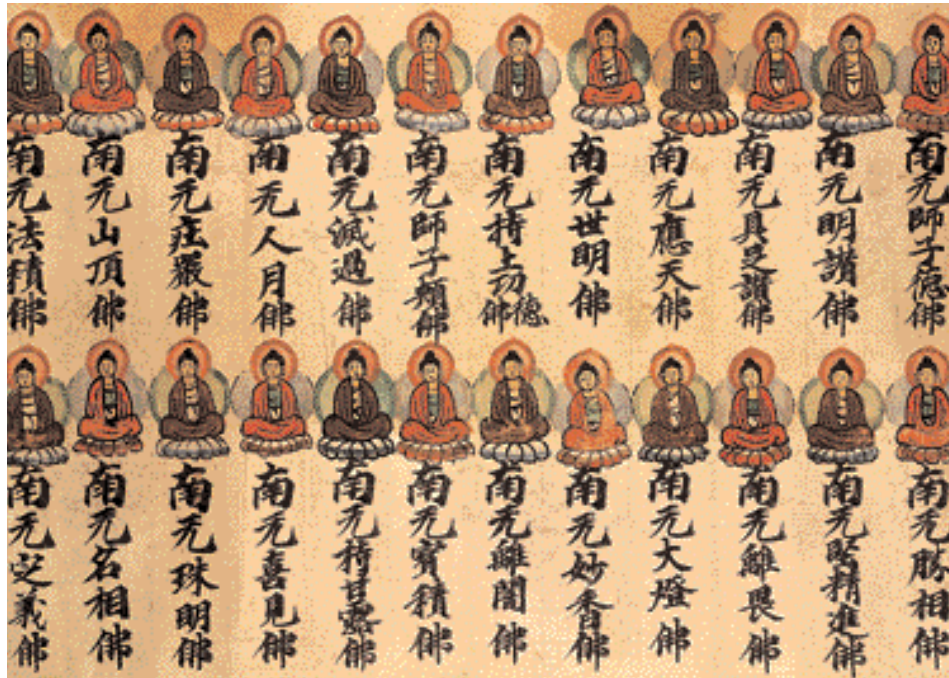 南无師子德佛
南无明讚佛
南无具足讚佛
南无應天佛
南无世明佛
南无持上功德佛
南无師子頰佛
南无滅過佛
南无人月佛
南无莊嚴佛
南无山頂佛
南无法積佛
南无勝相佛
南无堅精進佛
南无離畏佛
南无大燈佛
南无妙香佛
南无離闇佛
南无寶積佛
南无持甘露佛
南无喜見佛
南无珠明佛
南无名相佛
南无定義佛